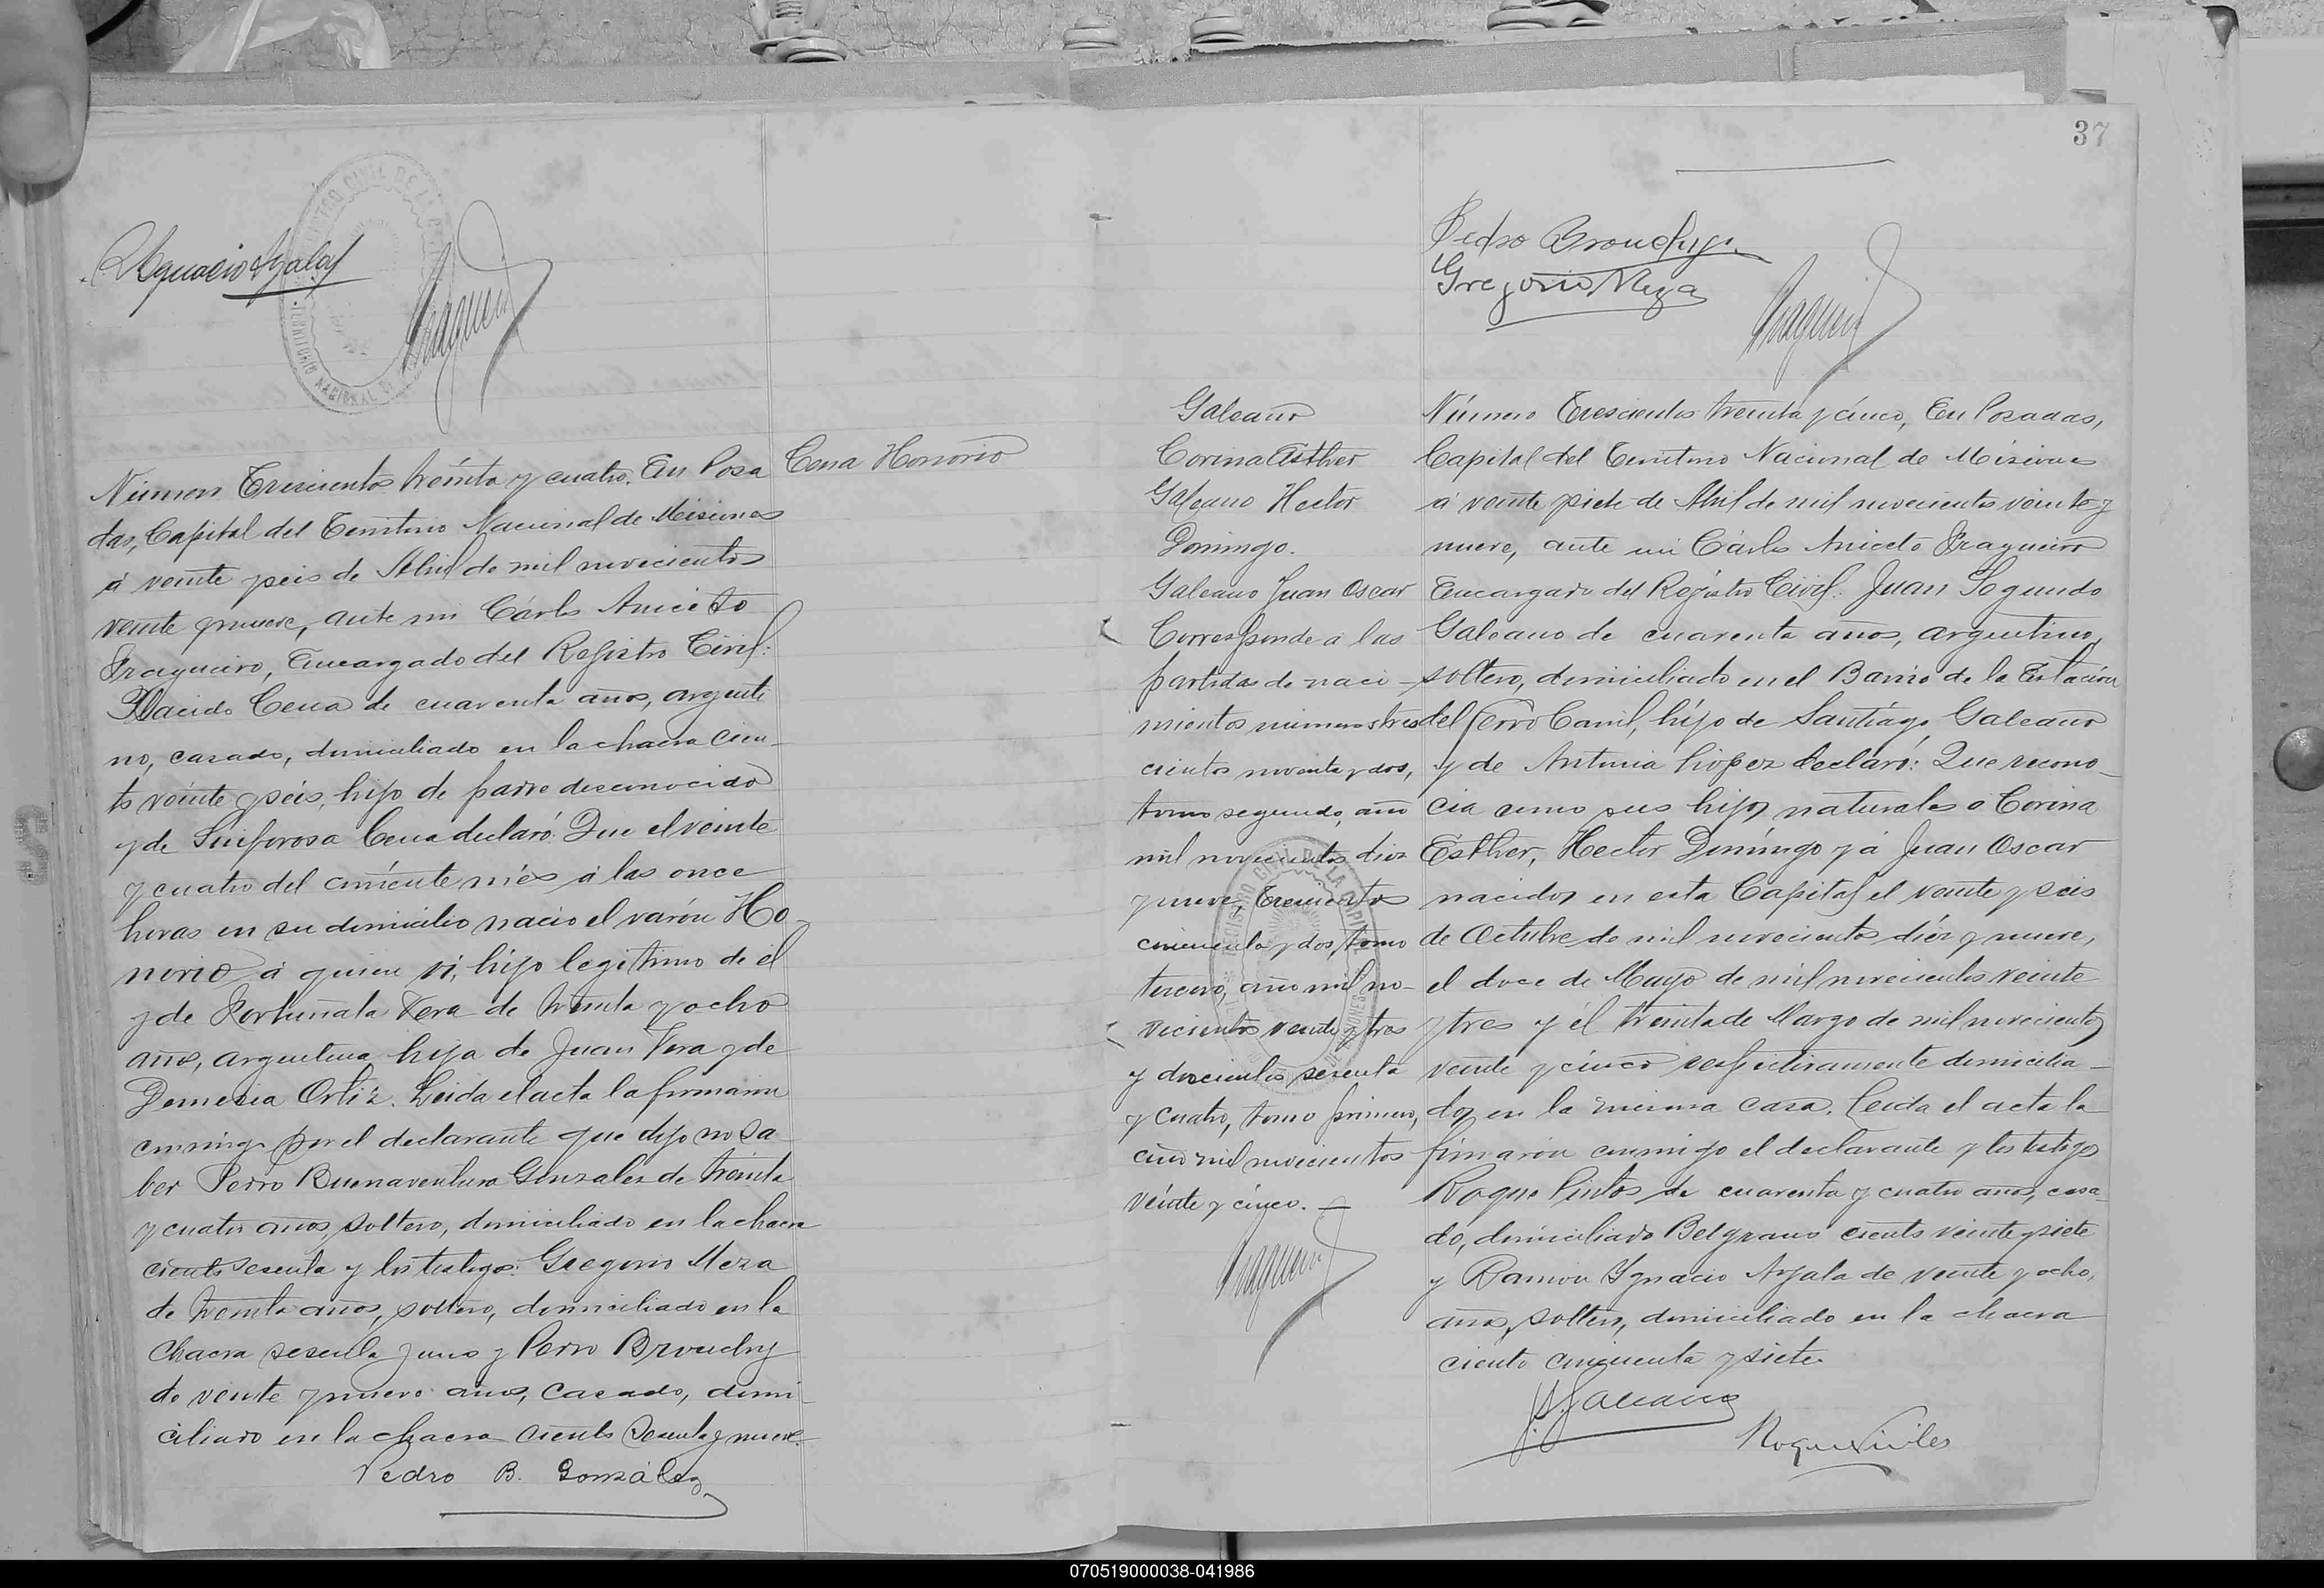 R Ygnacio Ayala
Número Trescientos treinta y cuatro. En Posa
das, Capital del Territorio Nacional de Misiones
á veinte y seis de Abril de mil novecientos
veinte y nueve, ante mi Cárlos Aniceto
Fragueiro, Encargado del Registro Civil:
Plácido Cena de cuarenta años, argenti
no, casado, domiciliado en la chacra cien-
to veinte y séis, hijo de padre desconocido
y de Sinforosa Cena declaró: Que el veinte
y cuatro del corriente més á las once
horas en su domicilio nacio el varón Ho-
norio á quien ví, hijo legitimo de él
y de Fortunata Vera de treinta y ocho
años, argentina, hija de Juan Vera y de
Demesia Ortiz. Leida el acta la firmaron
conmigo por el declarante que dijo no sa-
ber Pedro Buenaventura Gonzalez de treinta
y cuatro años, soltero, domiciliado en la chacra
ciento sesenta y los testigos: Gregorio Meza
de treinta años, soltero, domiciliado en la
chacra sesenta y uno y Pedro Brouchy
de veinte y nueve años, casado, domi-
ciliado en la chacra ciento sesenta y nueve.
Pedro B. González
Cena Honorio
37
Pedro Brouchy
Gregorio Meza
Galeano
Corina Esther
Galeano Hector
Domingo.
Galeano Juan Oscar
Corresponde a las
partidas de naci-
mientos números tres
cientos noventa y dos,
tomo segundo, año
mil novecientos diez
y nueve, trescientos
cincuenta y dos, tomo
tercero, año mil no-
vecientos veinte y tres
y doscientos sesenta
y cuatro, tomo primero,
año mil novecientos
veinte y cinco. —
Número Trescientos treinta y cinco, En Posadas,
Capital del Territorio Nacional de Misiones
á veinte y siete de Abril de mil novecientos veinte y
nueve, ante mi Cárlos Aniceto Fragueiro
Encargado del Registro Civil: Juan Segundo
Galeano de cuarenta años, argentino,
soltero, domiciliado en el Barrio de la Estación
del Ferro Carril, hijo de Santiago Galeano
y de Antonia López declaró: Que recono-
cia como sus hijos naturales a Corina
Esther, Hector Domingo y á Juan Oscar
nacidos en esta Capital el veinte y seis
de Octubre de mil novecientos diéz y nueve,
el doce de Mayo de mil novecientos veinte
y tres y él treinta de Marzo de mil novecientos
veinte y cinco respectivamente domicilia-
dos en la misma casa. Leida el acta la
firmaron conmigo el declarante y los testigos
Roque Pintos de cuarenta y cuatro años, casa-
do, domiciliado Belgrano ciento veinte y siete
y Ramón Ygnacio Ayala de veinte y ocho,
años, soltero, domiciliado en la chacra
ciento cincuenta y siete.
J. S. Galeano
070519000038-041986